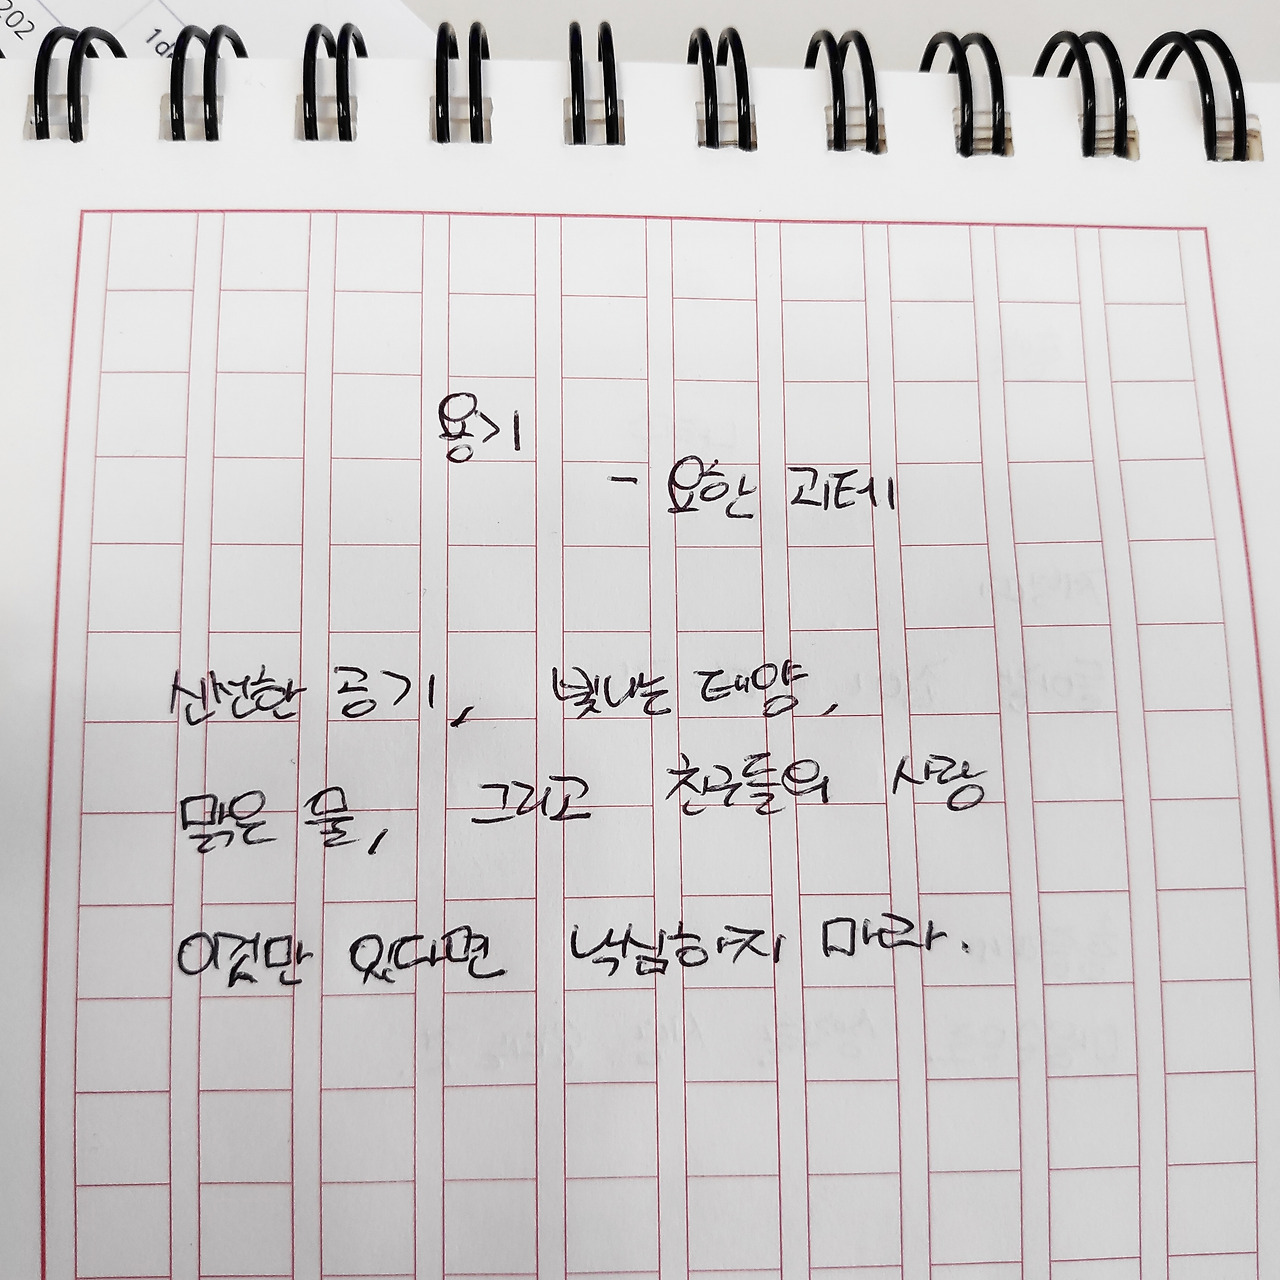 202
용기
- 요한 괴테
신선한 공기, 빛나는 태양,
맑은 물, 그리고 친구들의 사랑
이것만 있다면 낙심하지 마라.